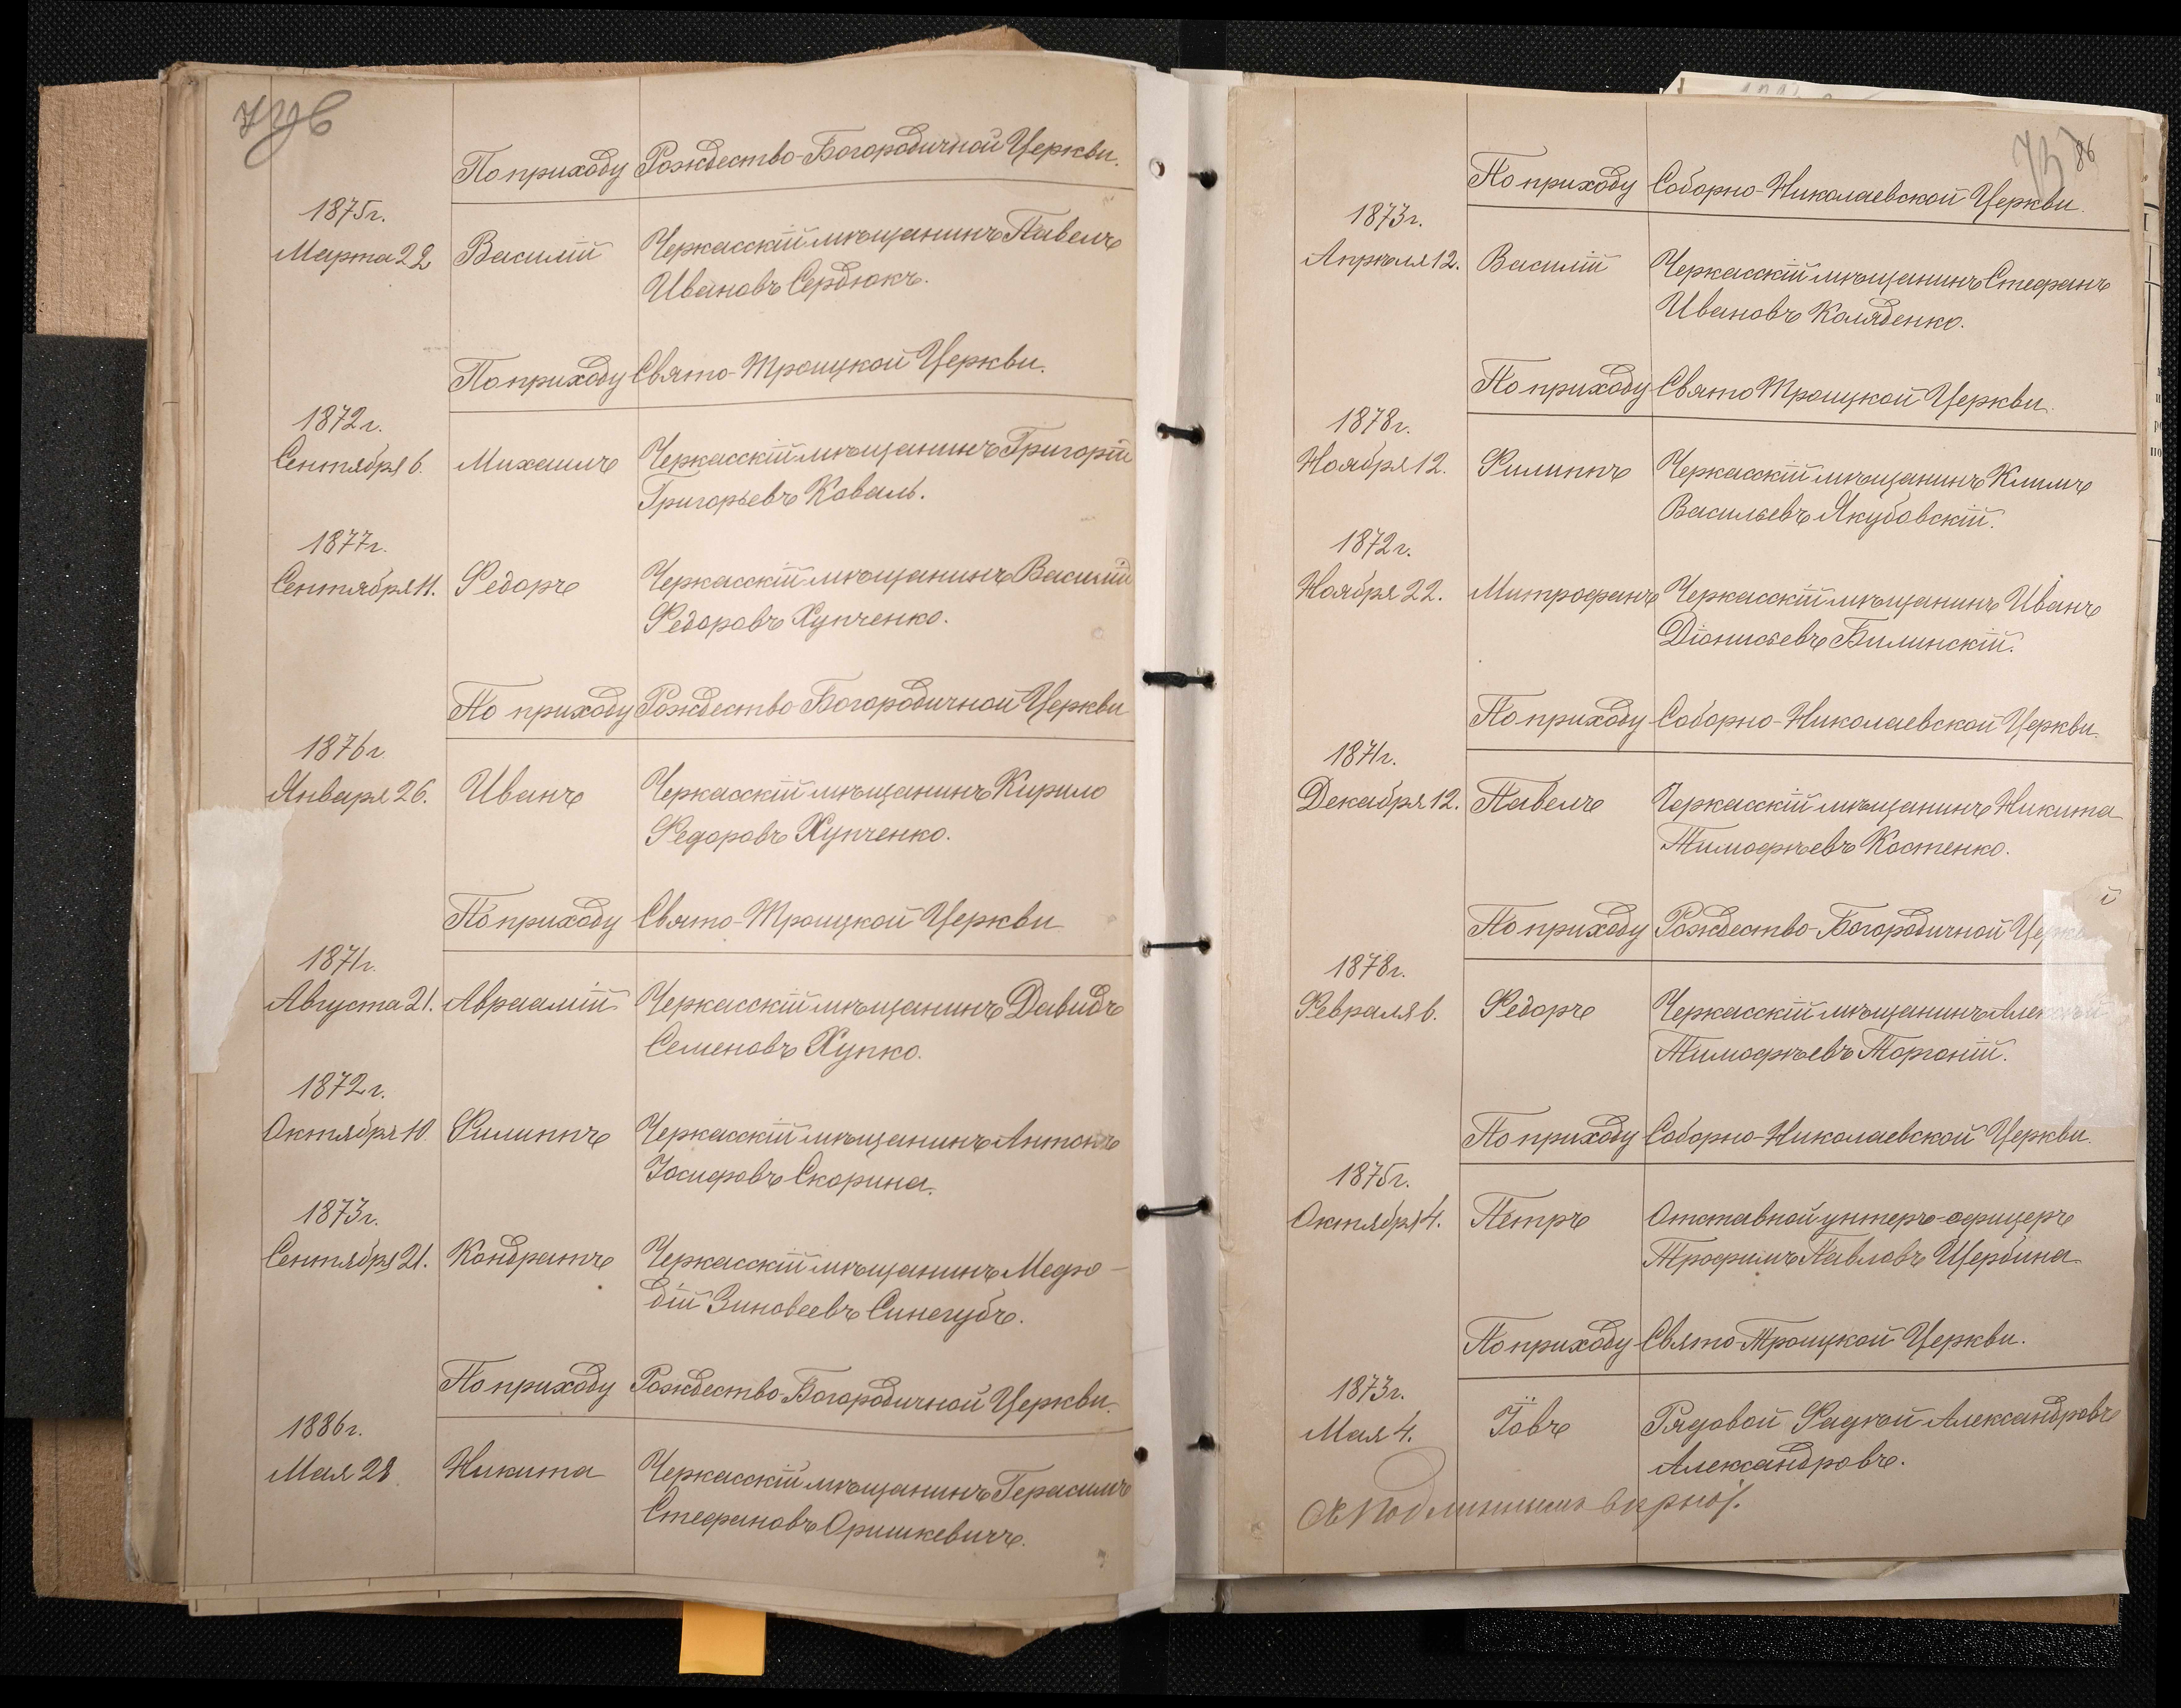 По приходу Рождество-Богородичной Церкви.
1875г.
Марта 22 Василій Черкасскій мѣщанинъ Павелъ
Ивановъ Сердюкъ.
По приходу Свято-Троицкой Церкви.
1872г.
Сентября 6. Михаилъ Черкасскій мѣщанинъ Григорій
Григорьевъ Коваль.
1877г.
Сентября 11. Федоръ Черкасскій мѣщанинъ Василій
Федоровъ Хупченко.
По приходу Рождество Богородичной Церкви
1876г.
Января 26. Иванъ Черкасскій мѣщанинъ Кирило
Федоровъ Хупченко.
По приходу Свято-Троицкой Церкви
1871г.
Августа 21. Авраамій Черкасскій мѣщанинъ Давидъ
Семеновъ Хупко.
1872г.
Октября 10 Филиппъ Черкасскій мѣщанинъ Антонъ
Іосифовъ Скорина.
1873г.
Сентября 21. Кондратъ Черкасскій мѣщанинъ Мефо-
дій Зиновеевъ Синегубъ.
По приходу Рождество-Богородичной Церкви.
1886г.
Мая 28. Никита Черкасскій мѣщанинъ Герасимъ
Стефановъ Оришкевичъ.
86
По приходу Соборно-Николаевской Церкви.
1873г.
Апрѣля 12. Василій Черкасскій мѣщанинъ Стефанъ
Ивановъ Коляденко.
По приходу Свято Троицкой Церкви.
1878г.
Ноября 12. Филиппъ Черкасскій мѣщанинъ Климъ
Васильевъ Якубовскій.
1872г.
Ноября 22. Митрофанъ Черкасскій мѣщанинъ Иванъ
Діонисьевъ Билинскій.
По приходу Соборно-Николаевской Церкви.
1871г.
Декабря 12. Павелъ Черкасскій мѣщанинъ Никита
Тимофѣевъ Костенко.
По приходу Рождество-Богородичной Церкви
1878г.
Февраля 6. Федоръ Черкасскій мѣщанинъ Алексѣй
Тимофѣевъ Торгоній.
По приходу Соборно-Николаевской Церкви.
1875г.
Октября 4. Петръ Отставной унтеръ-офицеръ
Трофимъ Павловъ Щербина
По приходу Свято-Троицкой Церкви.
1873г.
Мая 4. Іовъ Рядовой Фадѣй Александровъ
Александровъ.
Съ подлиннымъ вѣрно: